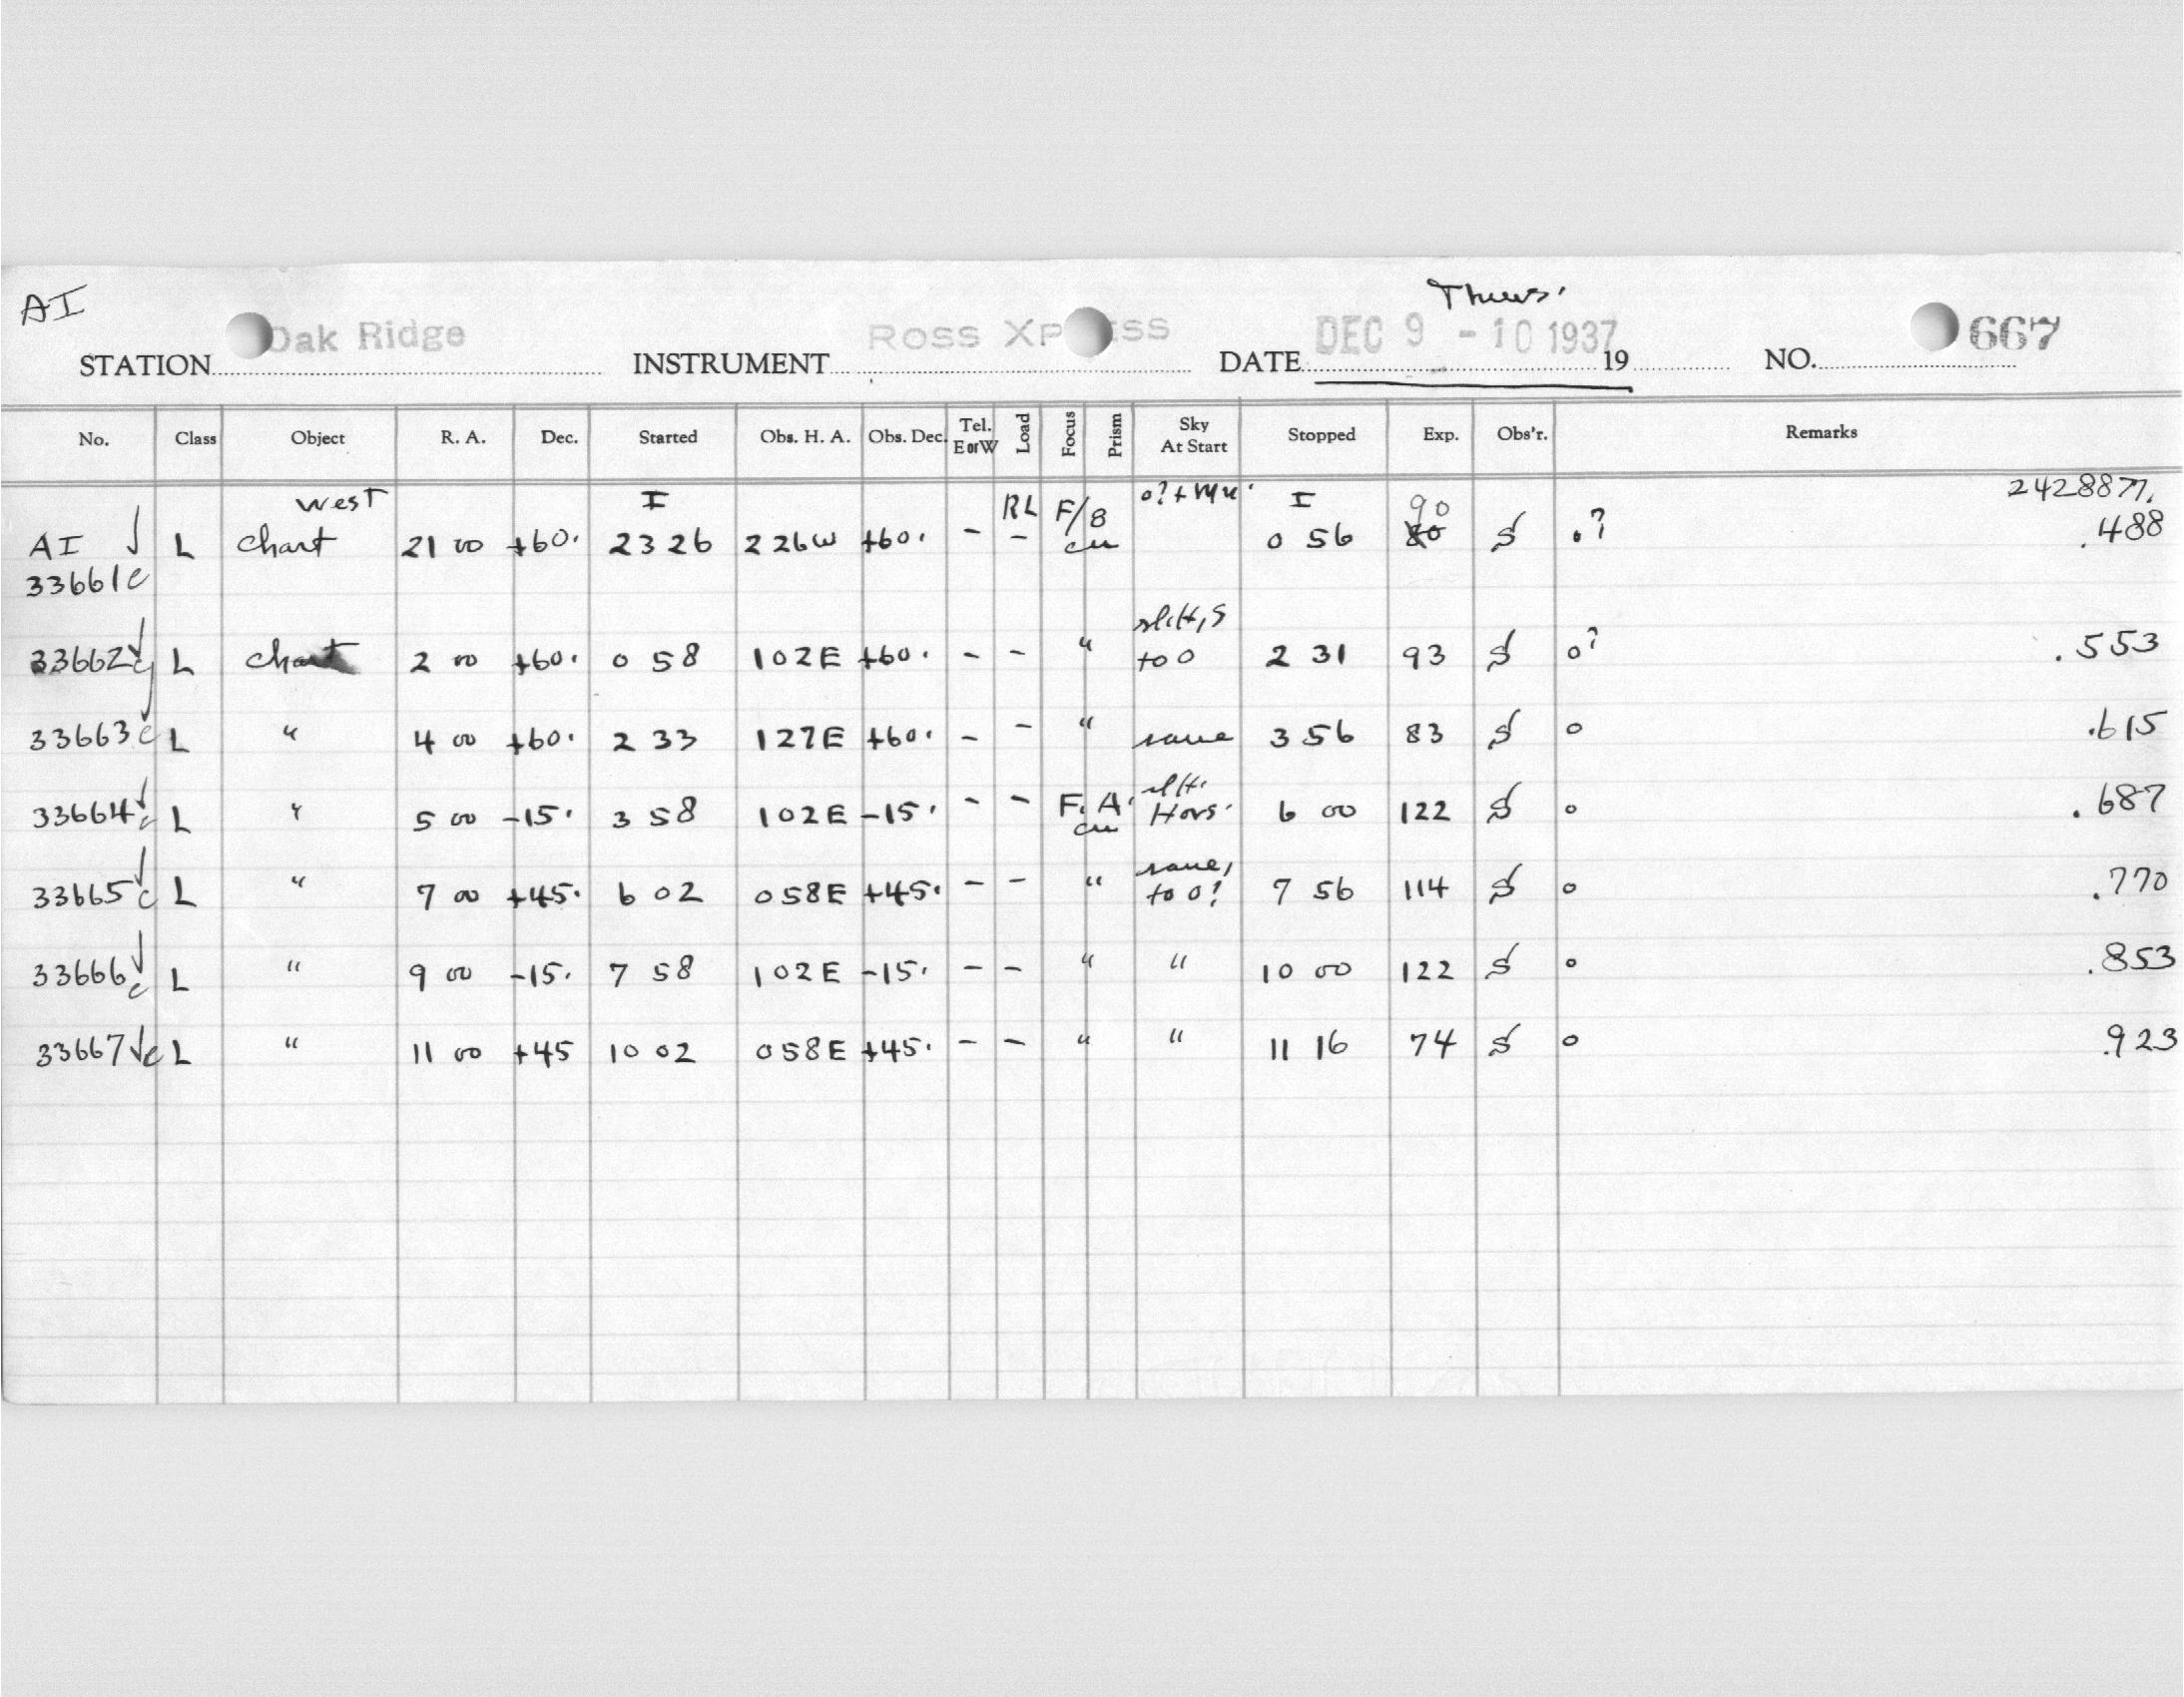 AI
Thurs.
STATION Oak Ridge INSTRUMENT Ross XP ESS DATE DEC 9 - 10 1937 19 NO. 667
No. Class Object R. A. Dec. Started Obs. H. A. Obs. Dec. Tel. E or W Load Focus Prism Sky At Start Stopped Exp. Obs'r. Remarks
west I RL F/8 I 90 2428877.
AI L chart 21 00 +60. 23 26 2 26W +60. - - cu 0 56 80 S o? .488
33661c
slHt, S
33662c L chart 2 00 +60. 0 58 1 02E +60. - - " to 0 2 31 93 S o? .553
33663c L " 4 00 +60. 2 33 1 27E +60. - - " same 3 56 83 S o .615
33664c L " 5 00 -15. 3 58 1 02E -15. - - F. A. cu Hors. 6 00 122 S o .687
same,
33665c L " 7 00 +45. 6 02 0 58E +45. - - " to 0? 7 56 114 S o .770
33666c L " 9 00 -15. 7 58 1 02E -15. - - " " 10 00 122 S o .853
33667c L " 11 00 +45 10 02 0 58E +45. - - " " 11 16 74 S o .923